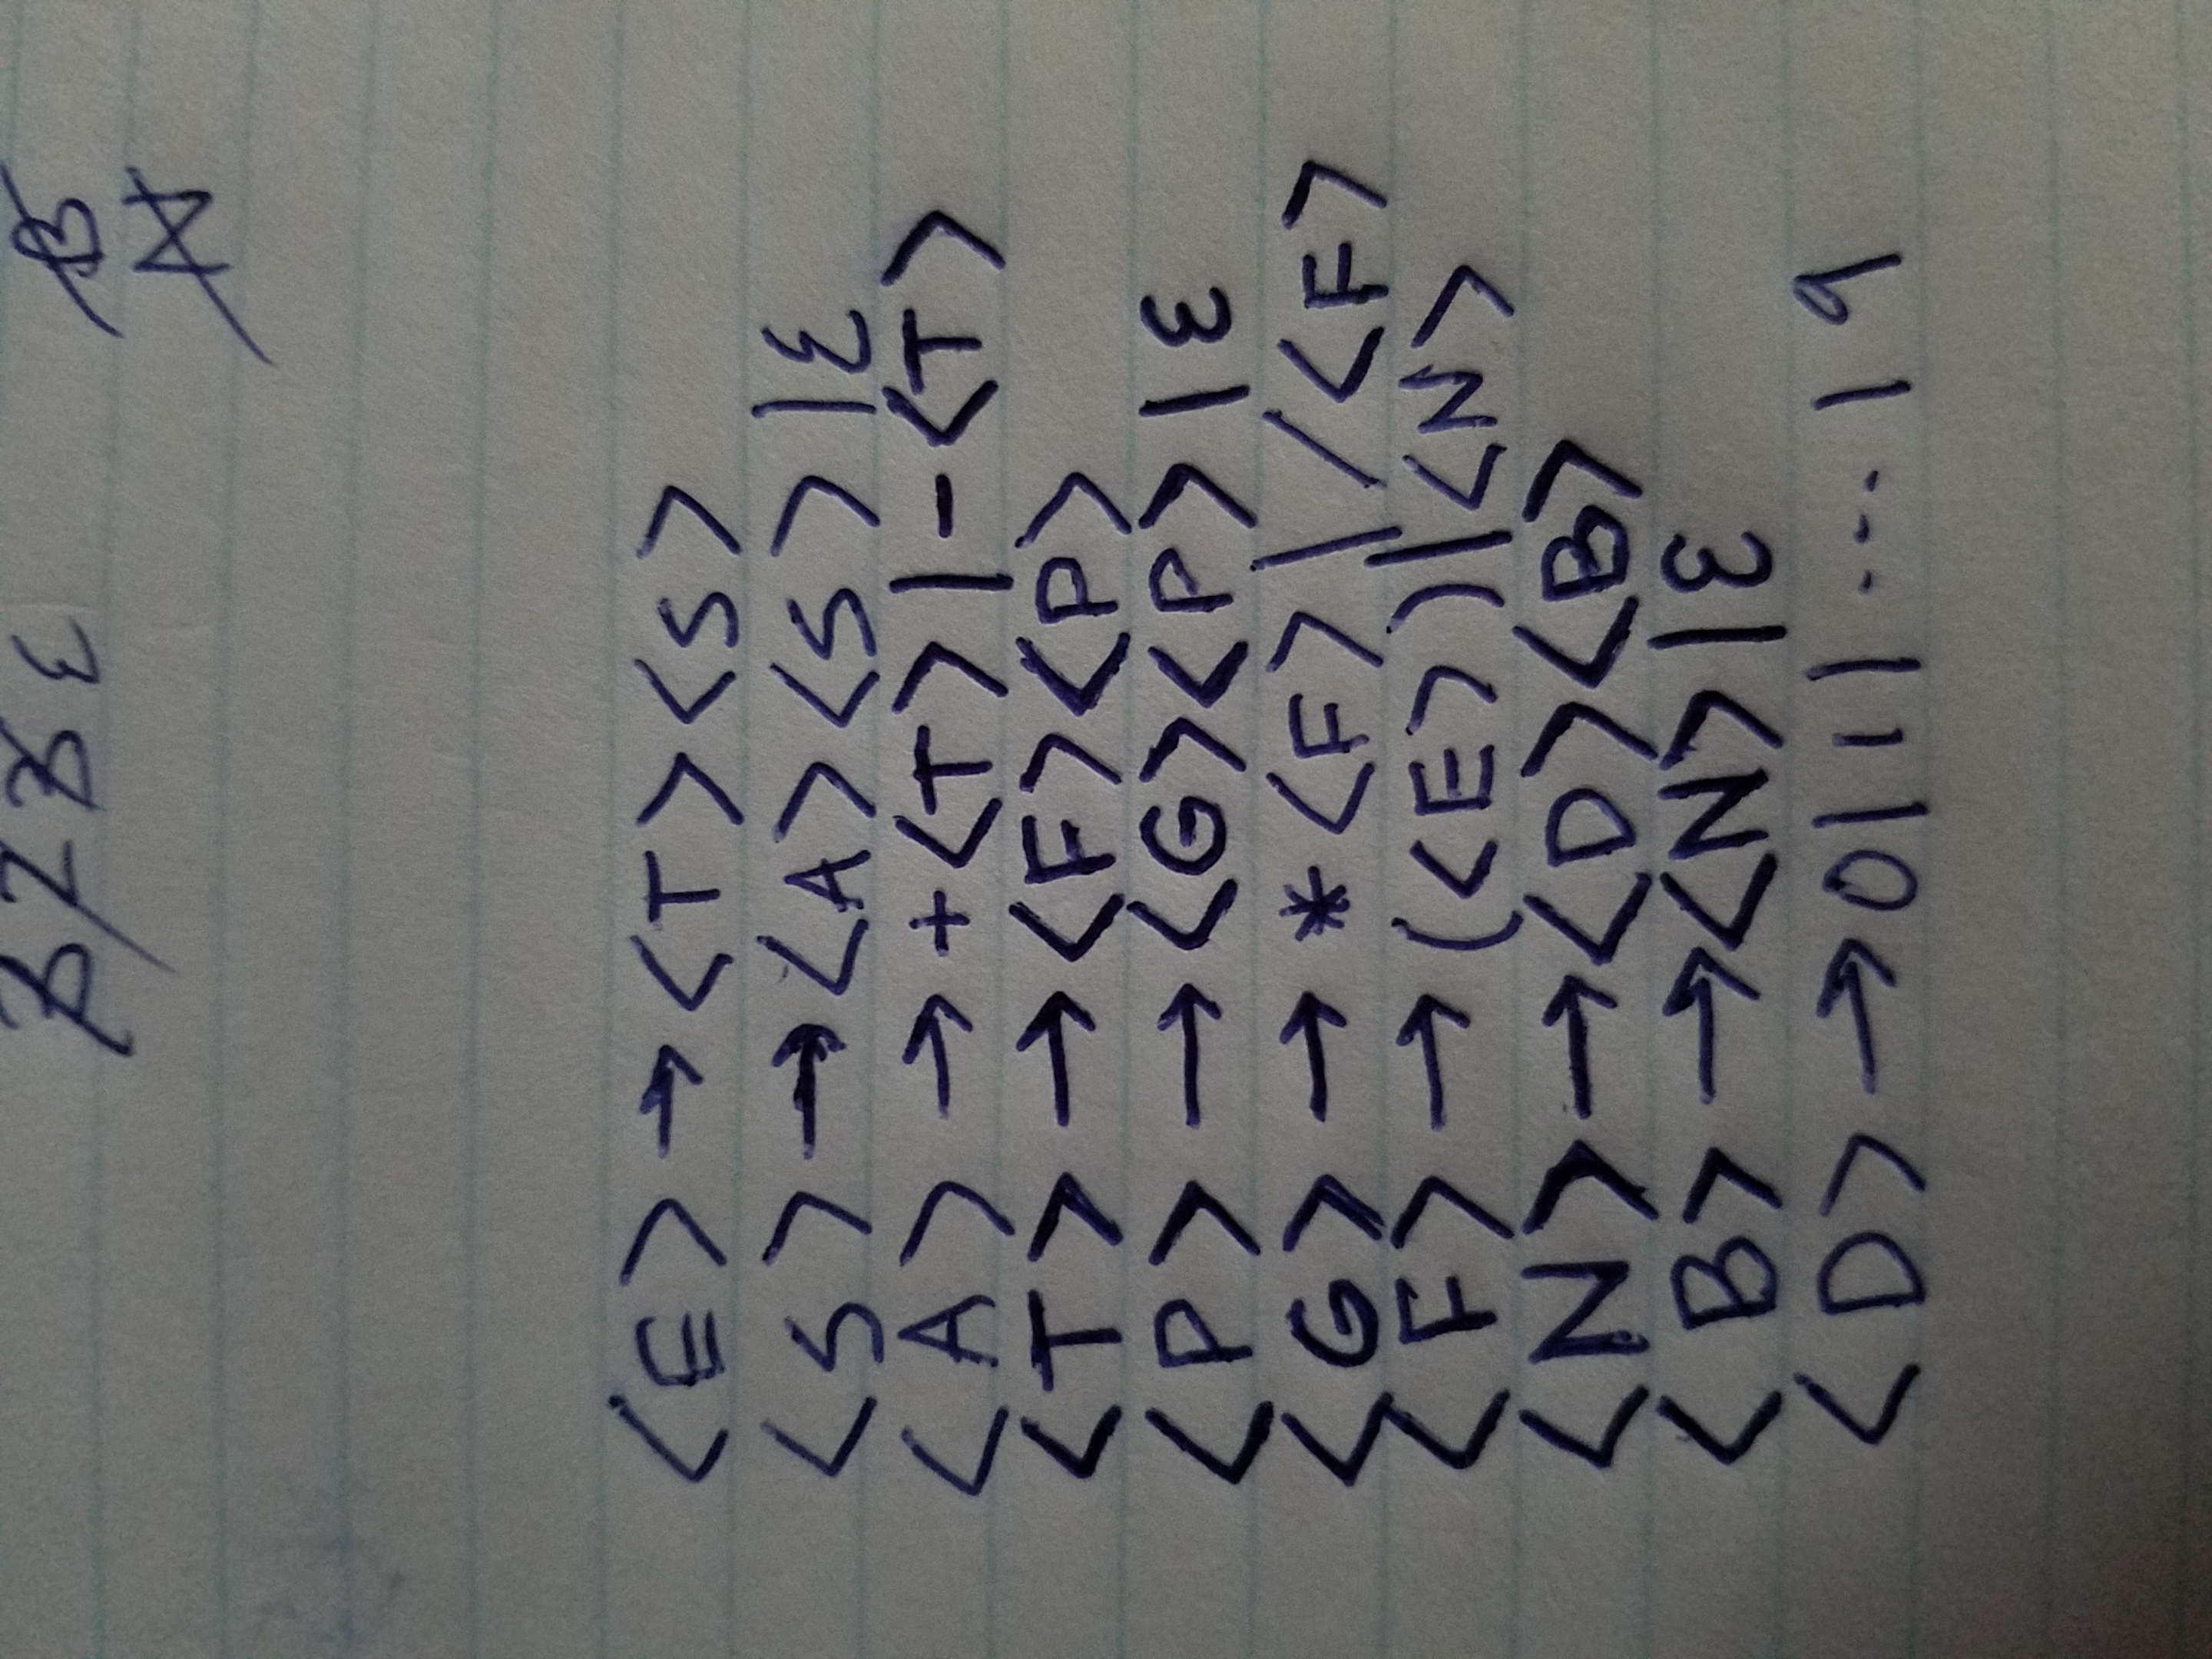 ε
<E> → <T><S>
<S> → <A><S> | ε
<A> → +<T> | -<T>
<T> → <F><P>
<P> → <G><P> | ε
<G> → *<F> | /<F>
<F> → (<E>) | <N>
<N> → <D><B>
<B> → <N> | ε
<D> → 0 | 1 | ... | 9